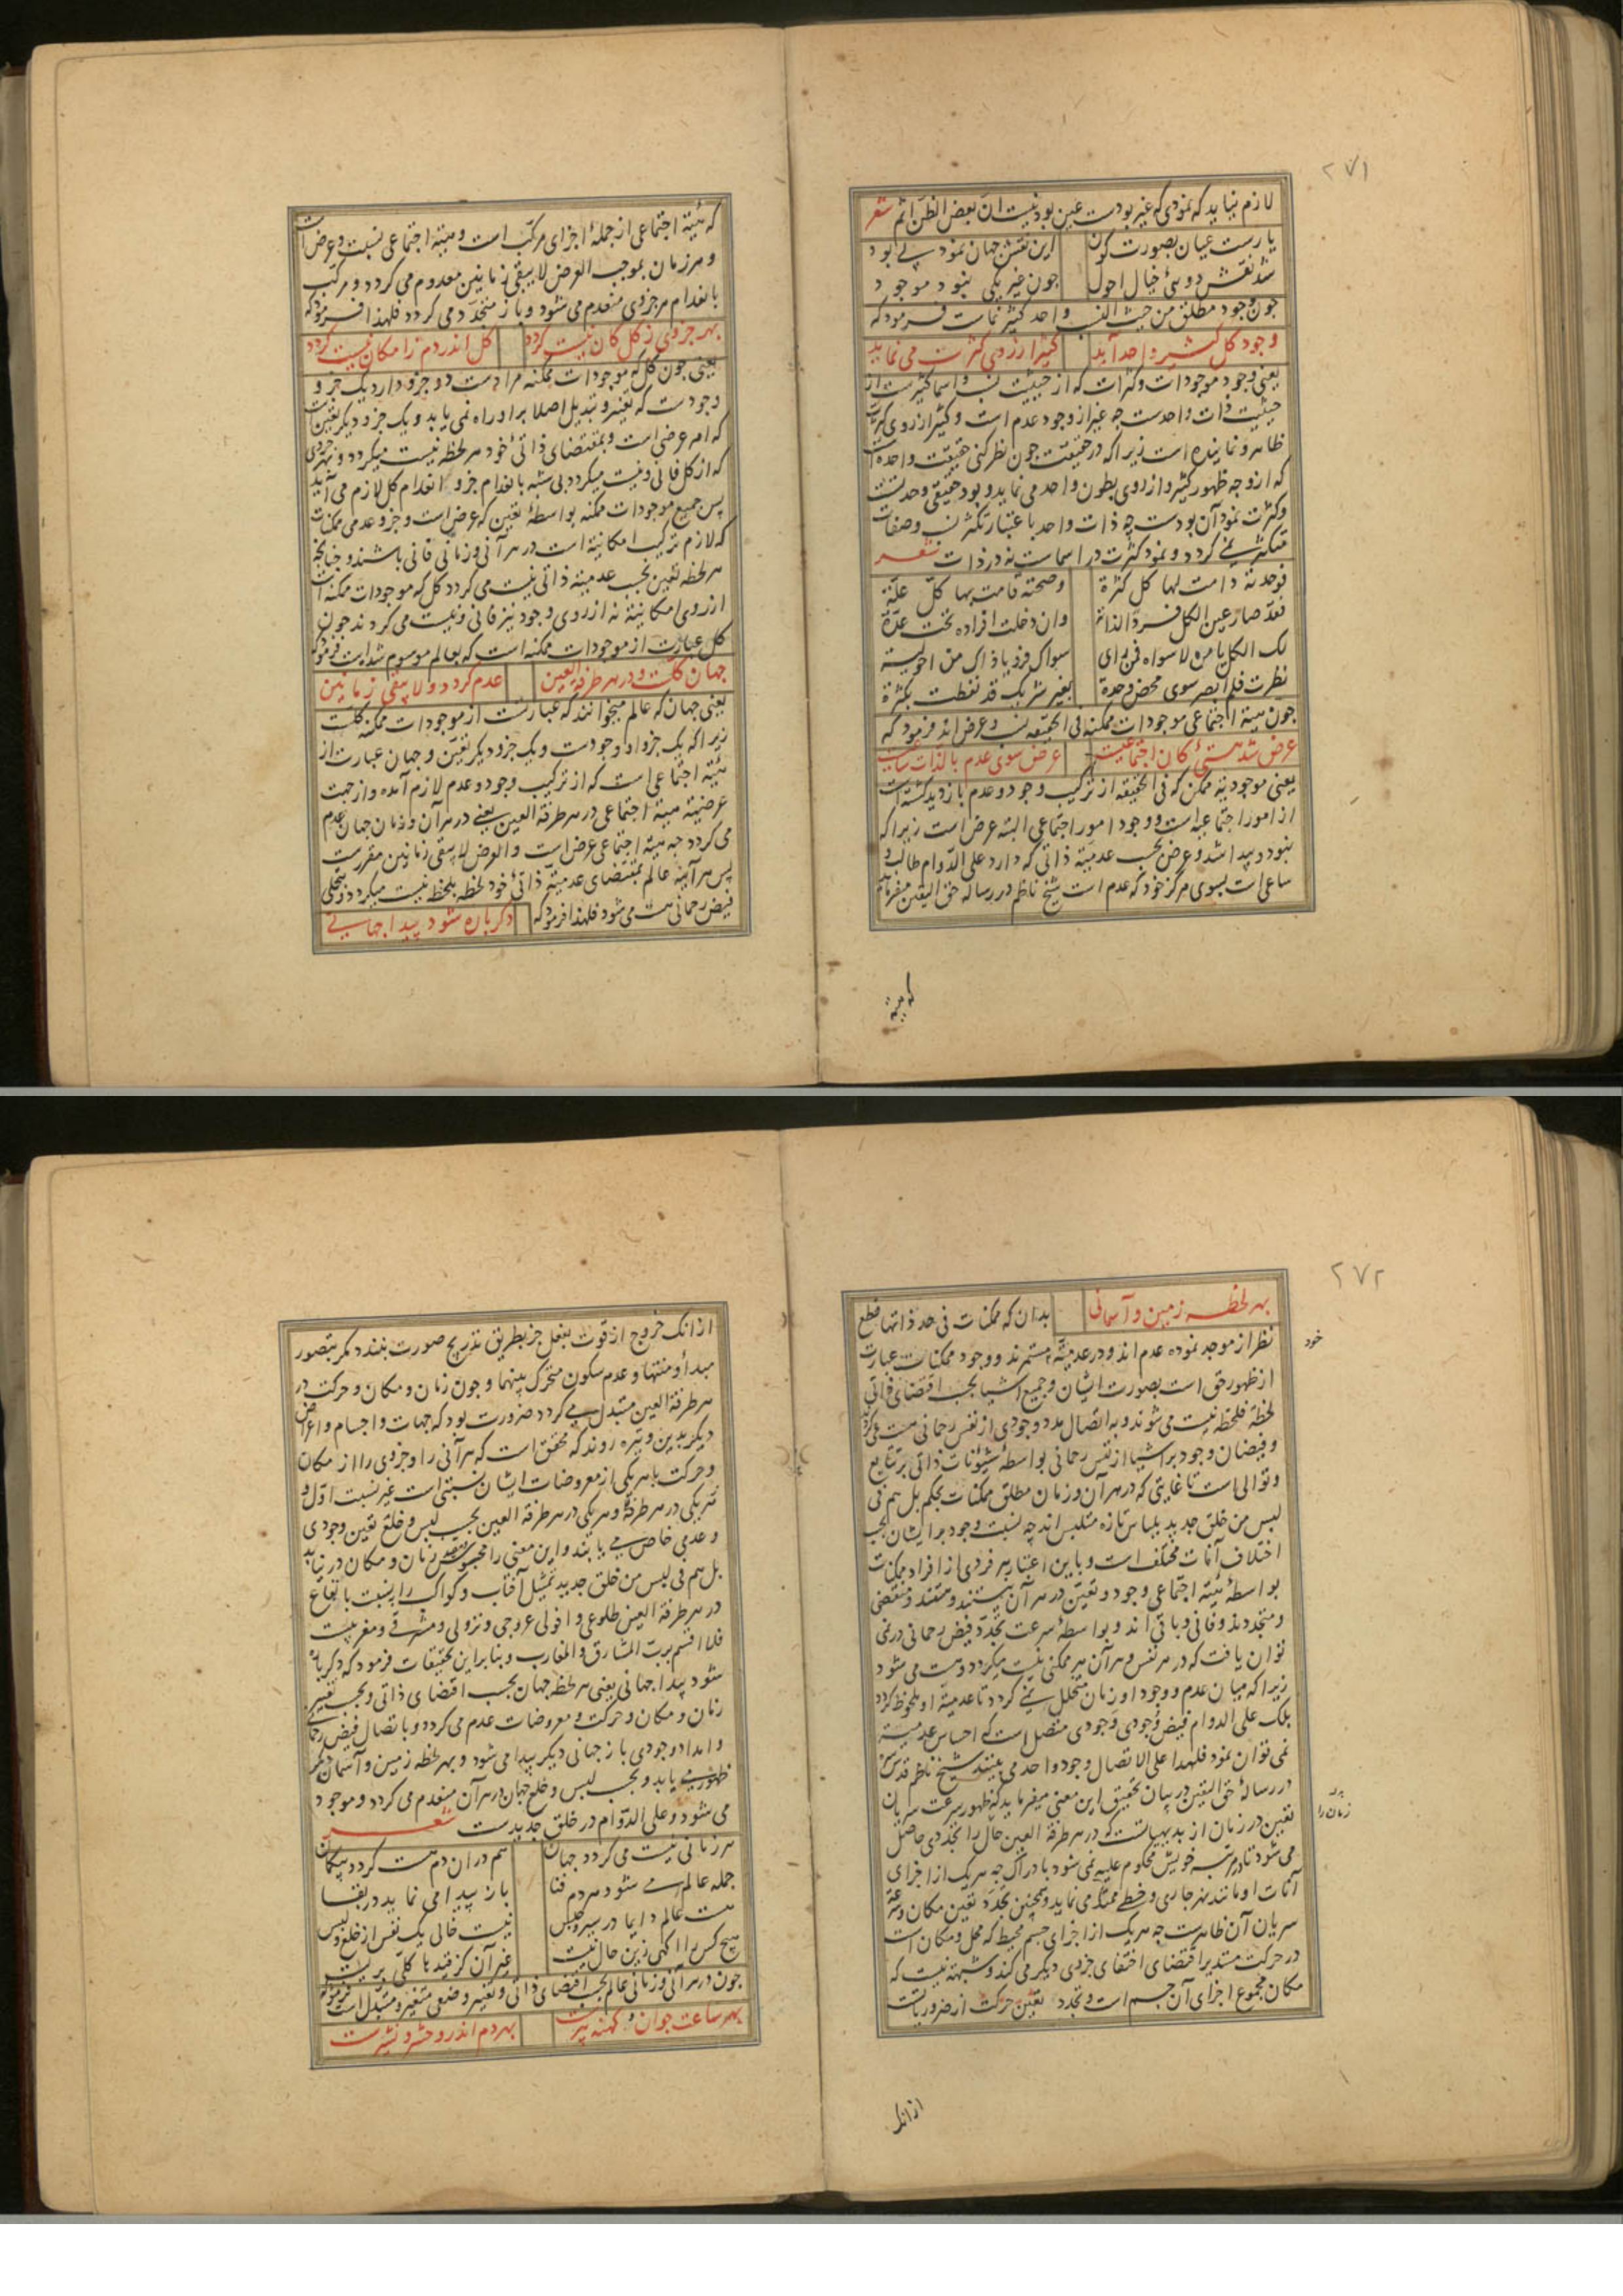 ۲۷۱
لازم نیاید که نمودی که غیر بودست عین بود نیست ان بعض الظن اثم شعر
یارست عیان بصورت کون این نقش جهان نمود بی بود
شد نقش دوئی خیال احول جون غیر یکی نبود موجود
جون وجود مطلق من حیث النسب واحد کثیر نماست فرمود که
وجود کل کثیر واحد آید کثیر از روی کثرت می نماید
یعنی وجود موجودات و کثرات که از حیثیت نسب و اسما کثیرست از
حیثیت ذات واحدست چه غیر از وجود عدم است و کثیر از روی کثرت
ظاهر و نماینده است زیرا که در حقیقت جون نظر کنی حقیقت واحده است
که از وجه ظهور کثیر و از روی بطون واحد می نماید و بود حقیقی وحدتست
و کثرت نمود آن بودست چه ذات واحد باعتبار تکثر نسب و صفات
متکثر نمی گردد و نمود کثرت در اسماست نه در ذات شعر
فوحدته دامت لها کل کثرة وصحته قامت بها کل علة
فقد صار عین الکل فردا لذاته وان دخلت افراده تحت عدة
لک الکل یا من لا سواه فمن رای سواک فرؤیا ذاک من احولیة
نظرت فلم ابصر سوی محض وحدة بغیر شریک قد تغطت بکثرة
جون هیئة اجتماعی موجودات ممکنه فی الحقیقه نسب و عرض اند فرمود که
عرض شد هستئ کان اجتماعیست عرض سوی عدم بالذات ساعیست
یعنی موجودیة ممکن که فی الحقیقه از ترکیب وجود و عدم بازدید گشته است
از امور اجتماعیه است و وجود امور اجتماعی البته عرض است زیرا که
نبود و پیدا شد و عرض بحسب عدمیة ذاتی که دارد علی الدوام طالب و
ساعی است بسوی مرکز خود که عدم است شیخ ناظم در رساله حق الیقین میفرماید
که هیئة
که هیئة اجتماعی از جملهٔ اجزای مرکب است و هیئة اجتماعی نسبت و عرض است
و هر زمان بموجب العرض لا یبقی زمانین معدوم می گردد و مرکب
بانعدام هر جزوی منعدم می شود و باز متجدد می گردد فلهذا فرمود که
بهر جزوی ز کل کان نیست گردد کل اندر دم ز امکان نیست گردد
یعنی جون کل که موجودات ممکنه مرادست دو جزو دارد یک جزو
وجودست که تغییر و تبدیل اصلا برا و راه نمی یابد و یک جزو دیگر تعین است
که امر عرضی است و بمقتضای ذاتئ خود هر لحظه نیست میگردد و بهر جزوی
که از کل فانی و نیست میگردد بی شبه بانعدام جزو انعدام کل لازم می آید
پس جمیع موجودات ممکنه بواسطهٔ تعین که عرض است و جزو عدمی ممکنات
که لازم ترکیب امکانیة است در هر آنی و زمانی فانی باشند و چنانچه
هر لحظه تعین بحسب عدمیة ذاتی نیست می گردد کل که موجودات ممکنه است
از روی امکانیة نه از روی وجود نیز فانی و نیست می گردند جون
کل عبارت از موجودات ممکنه است که بعالم موسوم شده است فرمود که
جهان کلست و در هر طرفة العین عدم گردد و لا یبقی زمانین
یعنی جهان که عالم میخوانند که عبارتست از موجودات ممکنه کلست
زیرا که یک جزو او وجودست و یک جزو دیگر تعین و جهان عبارت از
هیئة اجتماعی است که از ترکیب وجود و عدم لازم آمده و از جهت
عرضیة هیئة اجتماعی در هر طرفة العین یعنی در هر آن و زمان جهان عدم
می گردد چه هیئة اجتماعی عرض است و العرض لا یبقی زمانین مقررست
پس هر آینه عالم بمقتضای عدمیة ذاتئ خود لحظه بلحظه نیست میگردد و بتجلی
فیض رحمانی هست می شود فلهذا فرمود که دگرباره شود پیدا جهانی
۲۷۲
بهر لحظه زمین و آسمانی بدان که ممکنات فی حد ذاتها قطع
نظر از موجد نموده عدم اند و در عدمیة مستمرند و وجود ممکنات عبارت
خود
از ظهور حق است بصورت ایشان و جمیع اشیا بحسب اقتضای ذاتی
لحظة فلحظة نیست می شوند و به اتصال مدد وجودی از نفس رحمانی هست می گردند
و فیضان وجود بر اشیا از نفس رحمانی بواسطهٔ شئونات ذاتی بر تتابع
و توالی است تا غایتی که در هر آن و زمان مطلق ممکنات بحکم بل هم فی
لبس من خلق جدید بلباس تازه متلبس اند چه نسبت وجود بر ایشان بحسب
اختلاف آنات مختلف است و باین اعتبار هر فردی از افراد ممکنات
بواسطهٔ هیئة اجتماعی وجود و تعین در هر آن هستند و منقضی
و متجددند و فانی و باقی اند و بواسطهٔ سرعت تجدد فیض رحمانی در نمی
توان یافت که در هر نفس و هر آن هر ممکنی نیست میگردد و هست می شود
زیرا که میان عدم و وجود او زمان متخلل نمی گردد تا عدمیة او ملحوظ گردد
بلک علی الدوام فیض وجودی وجودی متصل است که احساس عدمیة
نمی توان نمود فلهذا علی الاتصال وجود واحد می بینند شیخ ناظم قدس سره
در رسالهٔ حق الیقین در بیان تحقیق این معنی میفرماید که ظهور سرعت سریان
تعین در زمان از بدیهیاتست که در هر طرفة العین حال را تجددی حاصل
زمان را
می شود تا در مرتبه خویش محکوم علیه نمی شود بادراک چه هر یک از اجزای
آنات او مانند نهر جاری و خطی ممتد می نماید و همچنین تجدد تعین مکان و سرعة
سریان آن ظاهرست چه هر یک از اجزای جسم محیط که محل و مکان است
در حرکت مستدیر اقتضای اختفای جزوی دیگر می کند و شبهه نیست که
مکان مجموع اجزای آن جسم است و تجدد تعین حرکت از ضروریاتست
ازانک
ازانک خروج از قوت بفعل جز بطریق تدریج صورت نبندد مگر بتصور
مبدأ و منتها و عدم سکون متحرک بینهما و جون زمان و مکان و حرکت در
هر طرفة العین متبدل می گردد ضرورت بود که جهات و اجسام و اعراض
دیگر بدین وتیره روند که محقق است که هر آنی را و جزوی را از مکان
و حرکت با هر یکی از معروضات ایشان نسبتی است غیر نسبت اول و
هر یکی در هر طرفة العین بحسب لبس و خلع تعین وجودی
و عدمی خاص می یابند و این معنی را زمان و مکان در نیابد
بل هم فی لبس من خلق جدید تمثیل آفتاب و کواکب را بنسبت با بقاع
در هر طرفة العین طلوعی و افولی عروجی و نزولی و مشرقی و مغربیست
فلا اقسم برب المشارق و المغارب و بنا براین تحقیقات فرمود که دگرباره
شود پیدا جهانی یعنی هر لحظه جهان بحسب اقتضای ذاتی و بحسب تغییر
زمان و مکان و حرکت و معروضات عدم می گردد و باتصال فیض رحمانی
و امداد وجودی باز جهانی دیگر پیدا می شود و بهر لحظه زمین و آسمان دیگر
ظهور می یابد و بحسب لبس و خلع جهان در هر آن منعدم می گردد و موجود
می شود و علی الدوام در خلق جدیدست شعر
هر زمانی نیست می گردد جهان هم در ان دم هست گردد بیگمان
جمله عالم می شود هر دم فنا باز پیدا می نماید در بقا
هست عالم دایما در سیر و حبس نیست خالی یک نفس از خلع و لبس
هیچ کس را آگهی زین حال نیست غیر آن کز قید با کلی بریست
جون در هر آنی و زمانی عالم بحسب اقتضای ذاتی و تغییر وضعی متغیر و متبدل است فرمود که
بهر ساعت جوان و کهنه پیرست بهر دم اندرو حشر و نشرست